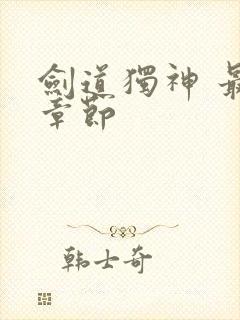 劍道獨神 最
章節
韩士奇